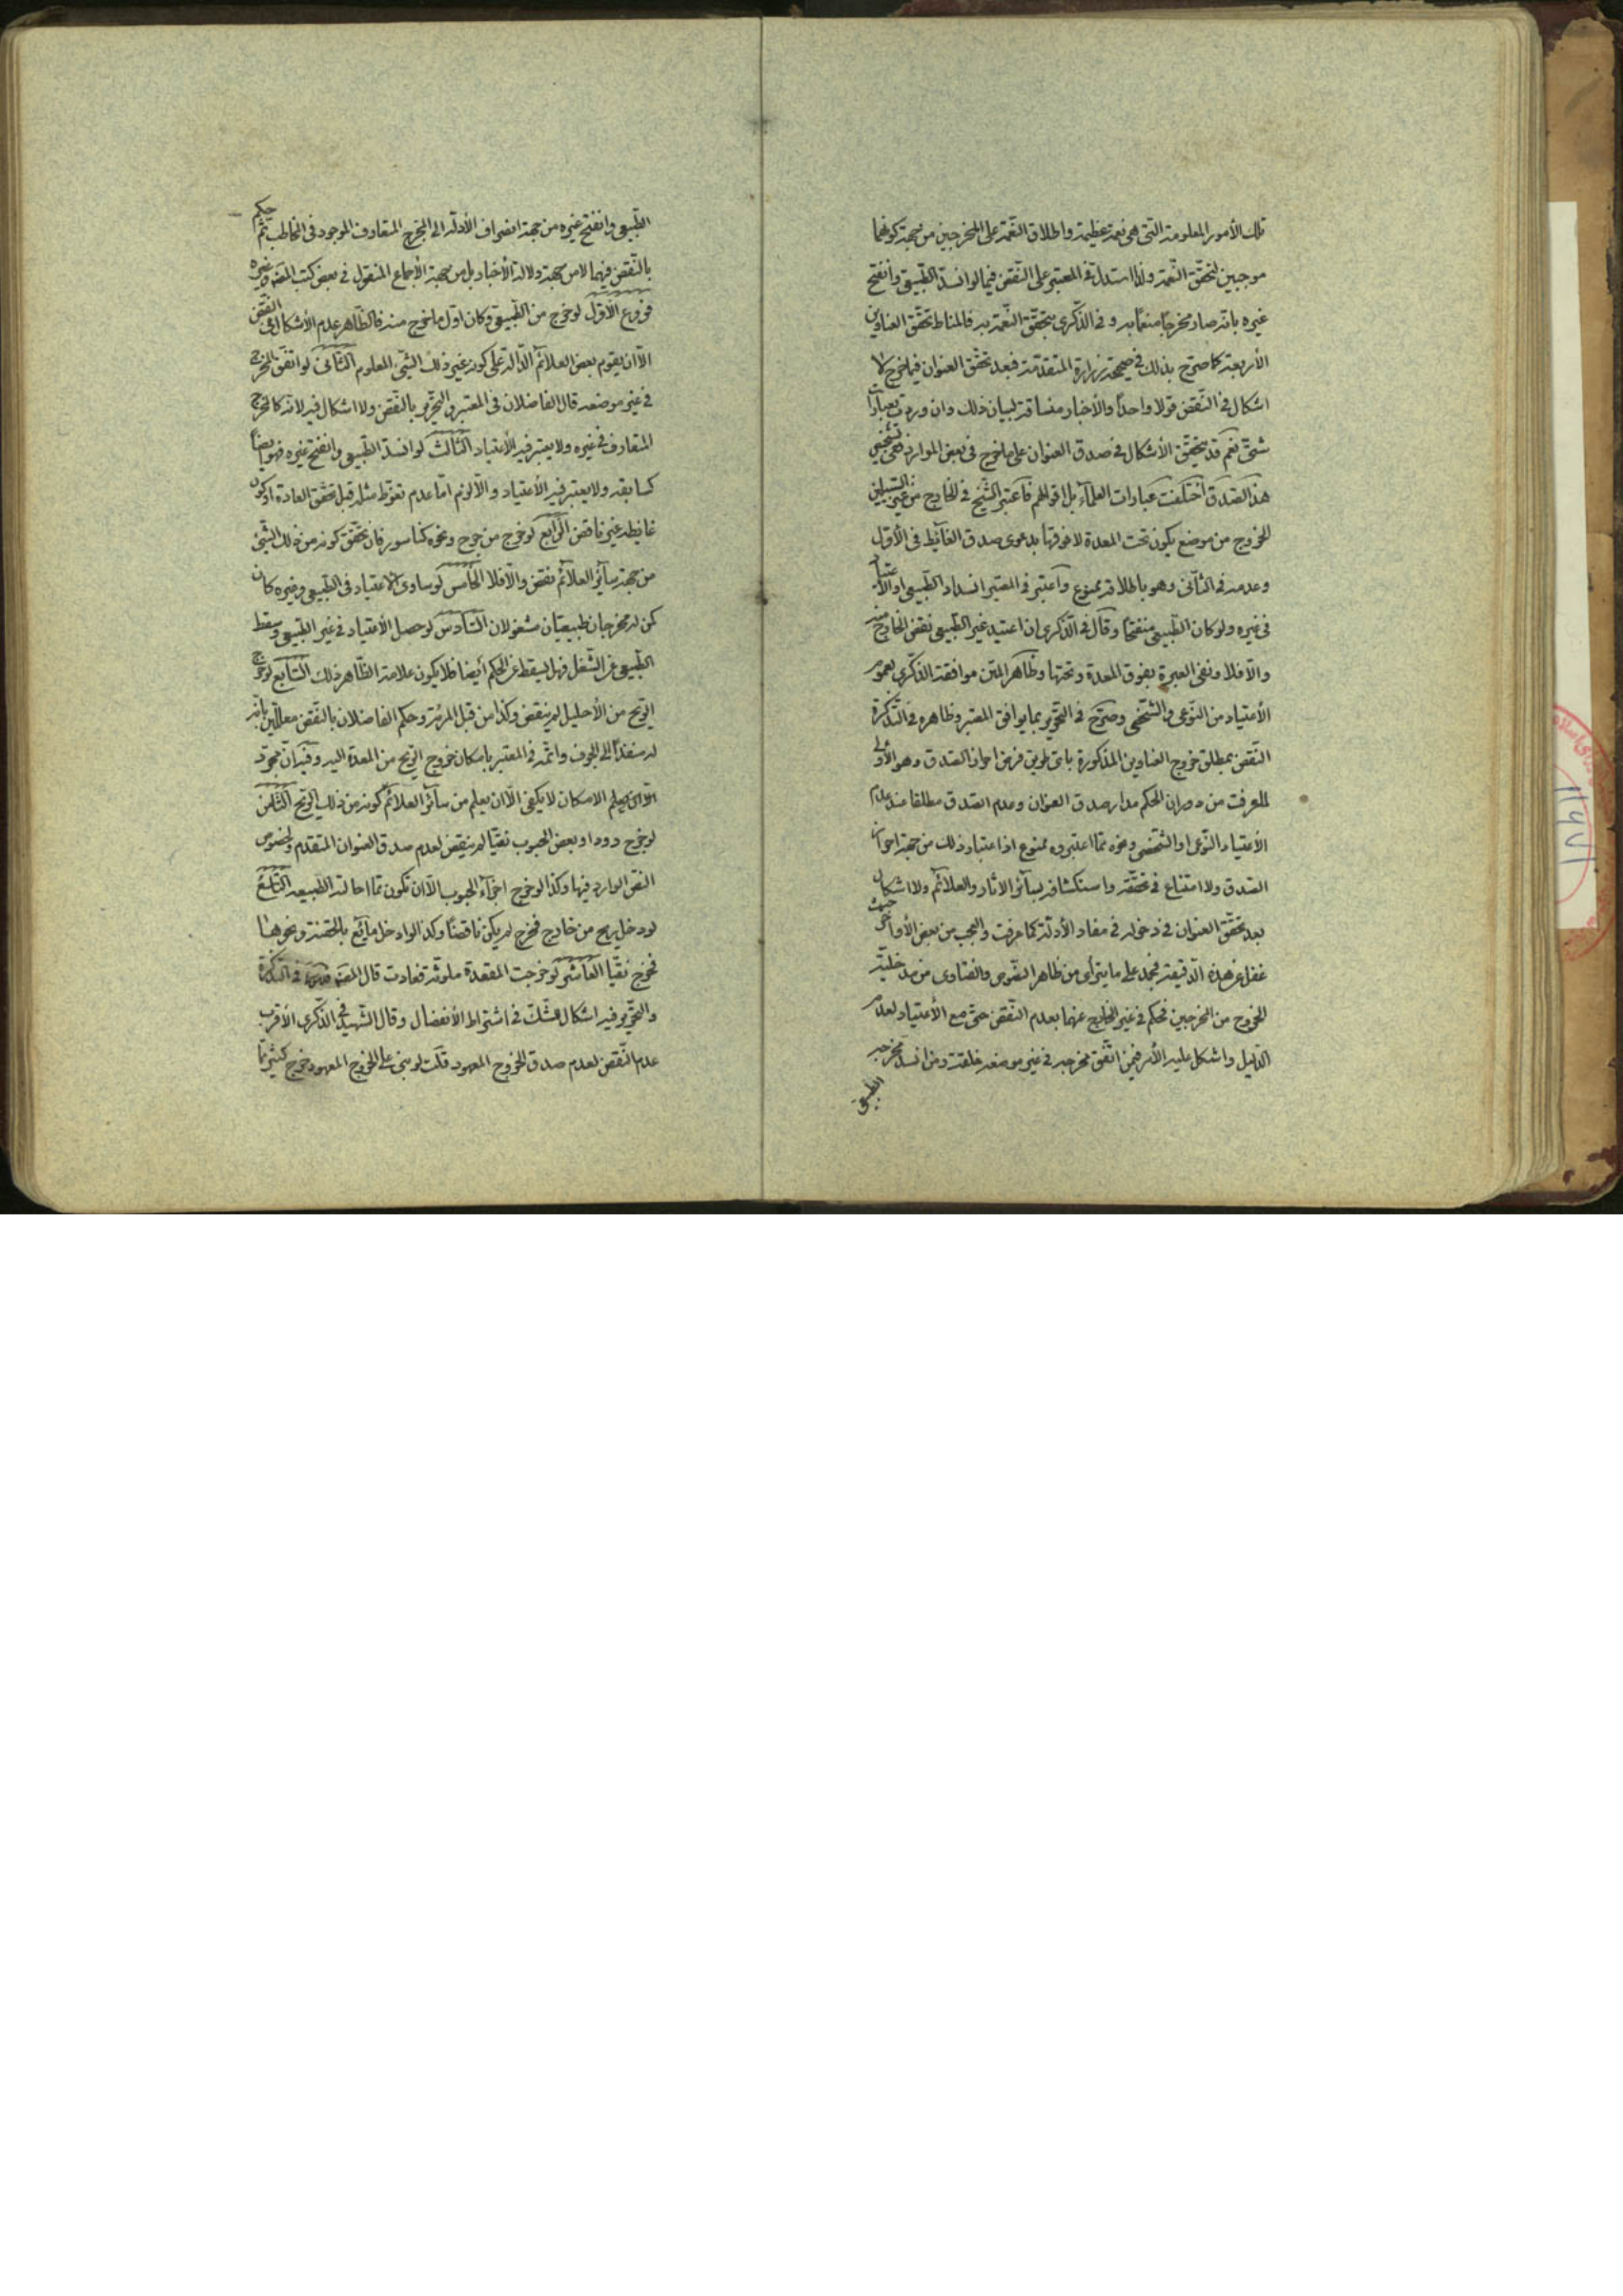 تلك الأمور المعلومة التي هي نعمة عظيمة واطلاق النعمة على المخرجين من جهة كونهما
موجبين لتحقق النعمة ولذا استدل في المعتبر على النقض فيما لو انسد الطبيعي وانفتح
غيره بانه صار مخرجا منعما به وفي الذكرى بتحقق النعمة به فالمناط تحقق العناوين
الأربعة كما صرح بذلك في صحيحة زرارة المتقدمة فبعد تحقق العنوان فيما خرج لا
اشكال في النقض قولا واحدا والأخبار منساقة لبيان ذلك وان وردت بعبارات
شتى نعم قد يتحقق الأشكال في صدق العنوان على ما خرج في بعض الموارد ففي تشخيص
هذا الصدق اختلفت عبارات العلماء بل اقوالهم فاعتبر الشيخ في الخارج من غير السبيلين
الخروج من موضع يكون تحت المعدة لا فوقها بدعوى صدق الغائط في الأول
وعدمه في الثاني وهو باطلاقه ممنوع واعتبر في المعتبر انسداد الطبيعي او الاعتياد
في غيره ولو كان الطبيعي منفتحا وقال في الذكرى ان اعتيد غير الطبيعي نقض الخارج منه
والا فلا ونفى العبرة بفوق المعدة وتحتها وظاهر المتن موافقة الذكرى بعموم
الأعتياد من النوعي والشخصي وصرح في التحرير بما يوافق المعتبر وظاهره في التذكرة
النقض بمطلق خروج العناوين المذكورة باى طريق فرض احراز الصدق وهو الأولى
لما عرفت من دوران الحكم مدار صدق العنوان وعدم الصدق مطلقا عند عدم
الأعتياد النوعي او الشخصي ونحوه مما اعتبروه ممنوع اذ اعتبار ذلك من جهة احراز
الصدق ولا امتناع في تحققه واستكشافه بسائر الاثار والعلائم ولا اشكال
بعد تحقق العنوان في دخوله في مفاد الأدلة كما عرفت والعجب من بعض الأواخر حيث
غفل عن هذه الدقيقة فجمد على ما يتراى من ظاهر النصوص والفتاوى من مدخلية
الخروج من المخرجين فحكم في غير الخارج عنهما بعدم النقض حتى مع الأعتياد لعدم
الدليل واشكل عليه الأمر فيمن اتفق مخرجه في غير موضعه خلقة ومن انسد مخرجه
الطبيعي
الطبيعي وانفتح غيره من جهة انصراف الأدلة الى المخرج المتعارف الموجود في المخاطب ثم حكم
بالنقض فيهما لا من جهة دلالة الأخبار بل من جهة الأجماع المنقول في بعض كتب المصنف وغيره
فروع الأول لو خرج من الطبيعي وكان اول ما خرج منه فالظاهر عدم الأشكال في النقض
الا ان يقوم بعض العلائم الدالة على كونه غير ذلك الشيء المعلوم الثاني لو اتفق المخرج
في غير موضعه قال الفاضلان في المعتبر والتحرير بالنقض ولا اشكال فيه لانه كالمخرج
المتعارف في غيره ولا يعتبر فيه الأعتياد الثالث لو انسد الطبيعي وانفتح غيره فهو ايضا
كسابقه ولا يعتبر فيه الأعتياد والا لزم اما عدم تغوط مثله قبل تحقق العادة او كون
غائطه غير ناقض الرابع لو خرج من جرح ونحوه كناسور فان تحقق كونه من ذلك الشيء
من جهة سائر العلائم نقض والا فلا الخامس لو ساوى الاعتياد في الطبيعي وغيره كان
كمن له مخرجان طبيعيان مشغولان السادس لو حصل الأعتياد في غير الطبيعي وسقط
الطبيعي عن الشغل فهل يسقط عن الحكم ايضا فلا يكون علامة الظاهر ذلك السابع لو خرج
الريح من الأحليل لم ينقض وكذا من قبل المرئة وحكم الفاضلان بالنقض معللين بانه
له منفذا الى الجوف واتمه في المعتبر بامكان خروج الريح من المعدة اليه وفيه ان مجرد
الامكان لا يكفى الا ان يعلم من سائر العلائم كونه من ذلك الريح الثامن
لو خرج دود او بعض الحبوب نقيا لم ينقض لعدم صدق العنوان المتقدم ولخصوص
النص الوارد فيها وكذا لو خرج اجزاء الحبوب الا ان تكون مما احالته الطبيعة التاسع
لو دخل ريح من خارج فخرج لم يكن ناقضا وكذا لو ادخل مايع بالحقنة ونحوها
فخرج نقيا العاشر لو خرجت المقعدة ملوثة فعادت قال المصنف في التذكرة
والتحرير فيه اشكال للشك في اشتراط الأنفصال وقال الشهيد في الذكرى الأقرب
عدم النقض لعدم صدق الخروج المعهود قلت لو بنى على الخروج المعهود خرج كثير مما